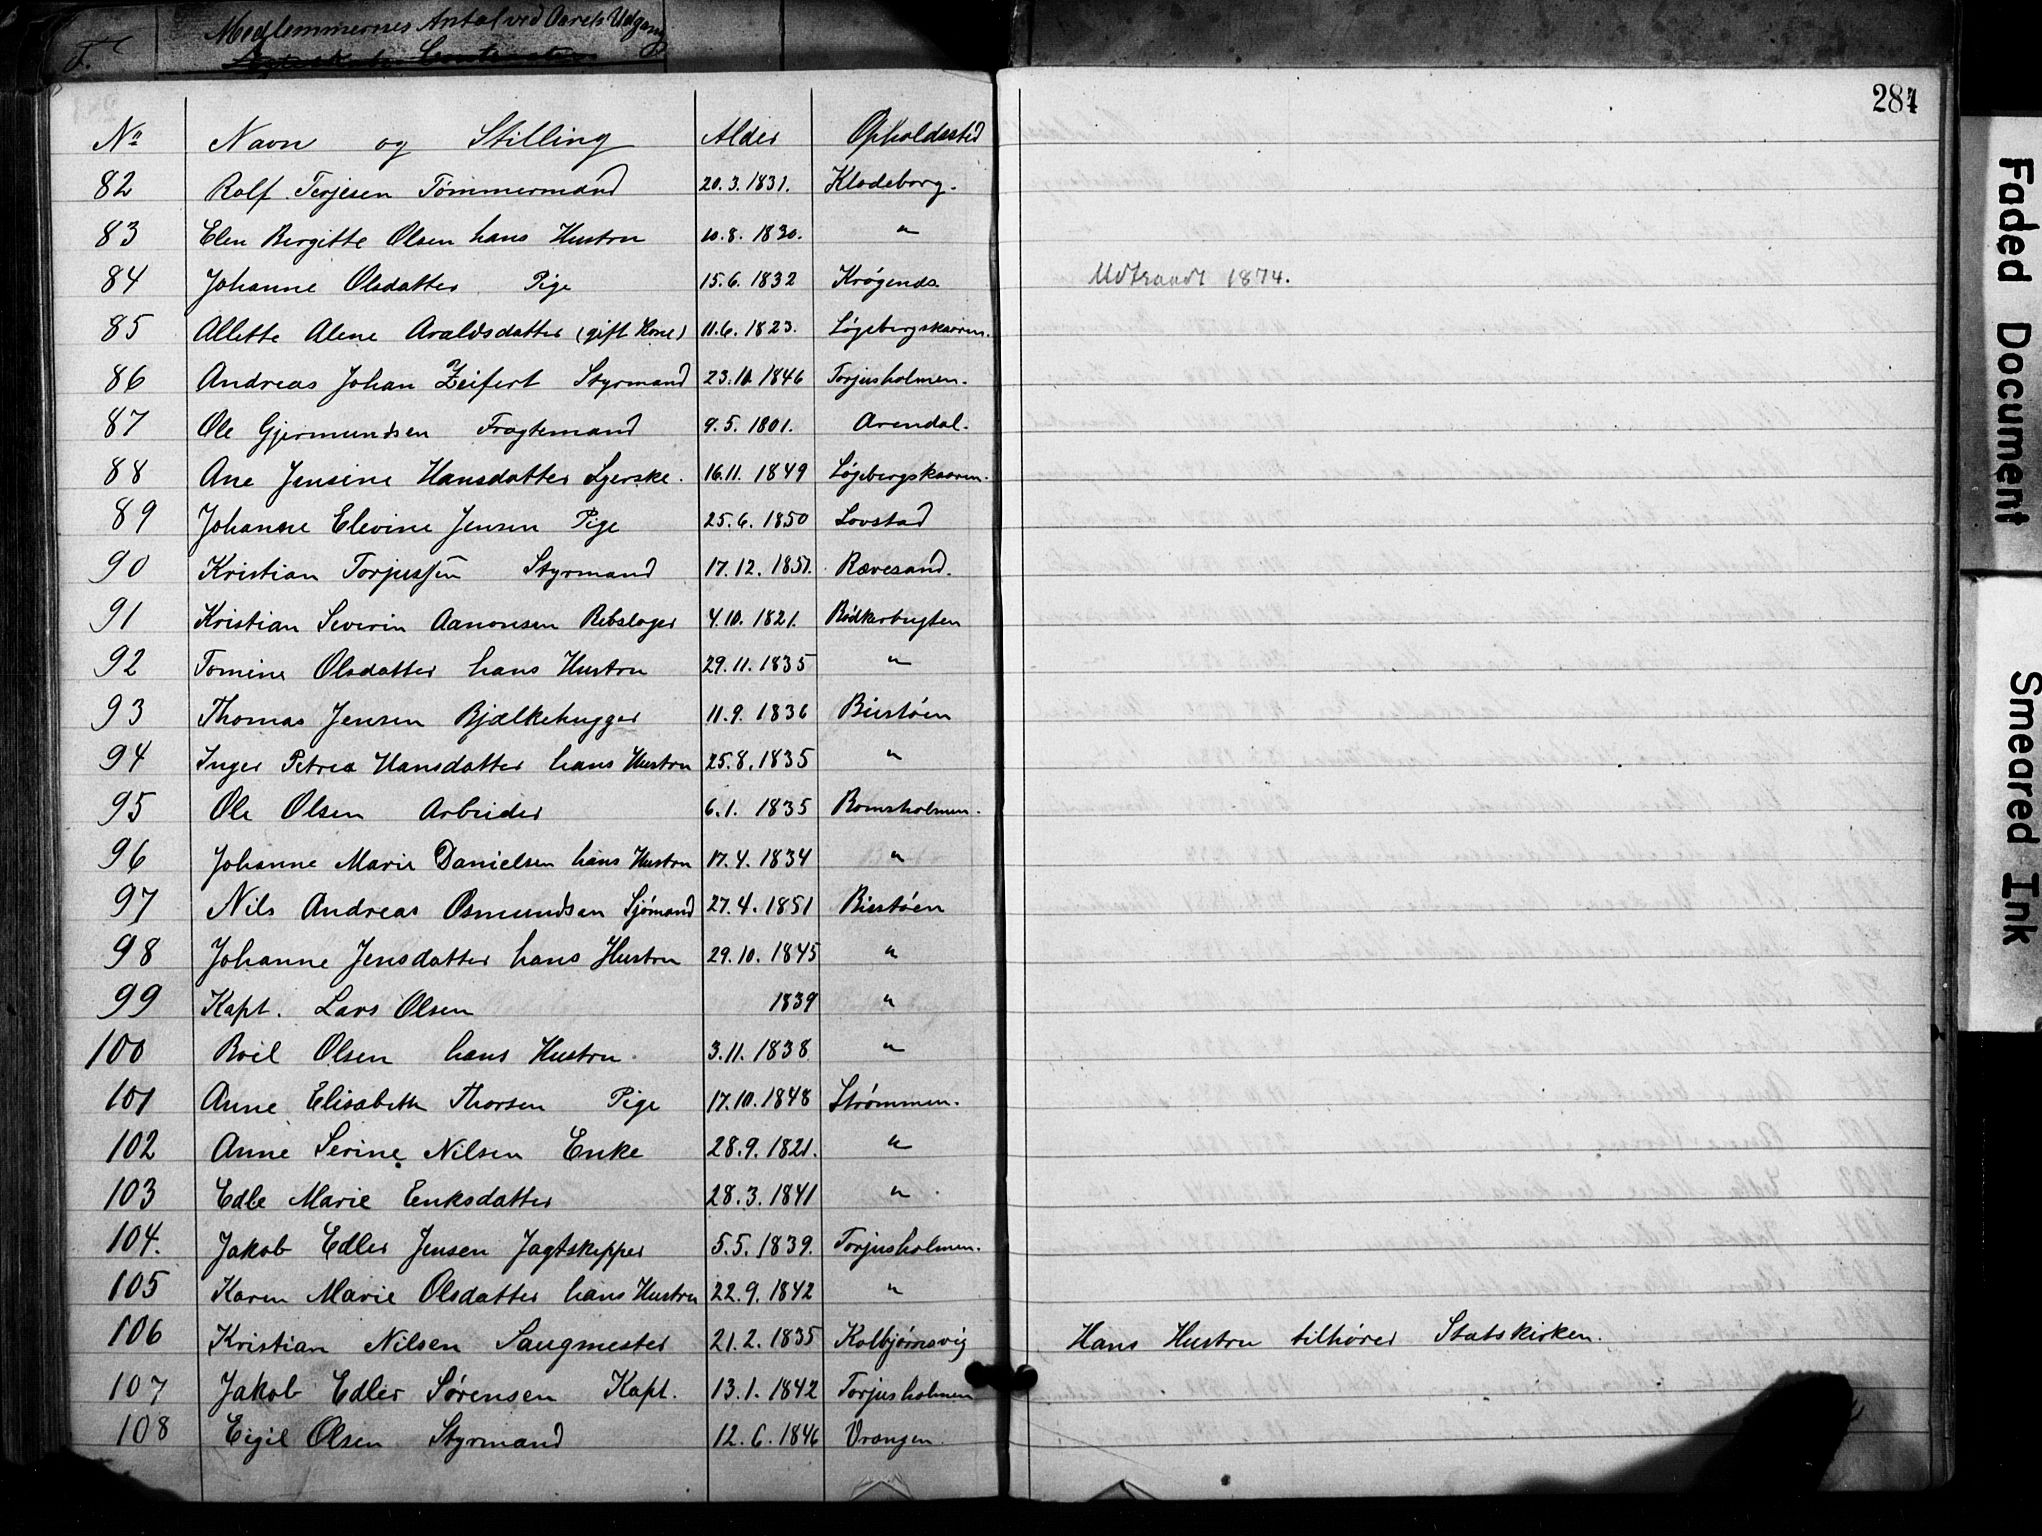 F.
Medlemmernes Antal ved Aarets Udgang
281
No Navn og Stilling Alder Opholdssted
82 Rolf Terjesen Tømmermand 20.3.1831. Klodeborg.
83 Elen Bergitte Olsen hans Hustru 10.8.1830. "
84 Johanne Olsdatter Pige 15.6.1832 Krøgenæs Udtraadt 1874.
85 Allette Alene Avaldsdatter (gift Kone) 11.6.1823.
86 Andreas Johan Zeifert Styrmand 23.10.1846 Torjusholmen.
87 Ole Gjermundsen Fragtemand 9.5.1801. Arendal.
88 Ane Jensine Hansdatter Syerske. 16.11.1849
89 Johanne Elevine Jensen Pige 25.6.1850 Lovstad
90 Kristian Torjussen Styrmand 17.12.1851. Rævesand.
91 Kristian Severin Aanonsen Rebslager 4.10.1821. Bödkerbugten
92 Tomine Olsdatter hans Hustru 29.11.1835 "
93 Thomas Jensen Bjælkehugger 11.9.1836 Biestöen
94 Inger Petrea Hansdatter hans Hustru 25.8.1835 "
95 Ole Olsen Arbeider 6.1.1835 Romsholmen.
96 Johanne Marie Danielsen hans Hustru 17.4.1834 "
97 Nils Andreas Osmundsen Sjömand 27.4.1851 Biestöen
98 Johanne Jensdatter hans Hustru 29.10.1845 "
99 Kapt. Lars Olsen 1839 "
100 Boil Olsen hans Hustru. 3.11.1838 "
101 Anne Elisabeth Thorsen Pige 17.10.1848 Strømmen.
102 Anne Serine Nilsen Enke 28.9.1821. "
103 Edle Marie Eriksdatter 28.3.1841 "
104. Jakob Edler Jensen Jagtskipper 5.5.1839. Torjusholmen.
105 Karen Marie Olsdatter hans Hustru 22.9.1842 "
106 Kristian Nilsen Saugmester 21.2.1835 Kolbjørnsvig Hans Hustru tilhører Statskirken.
107 Jakob Edler Sørensen Kapt. 13.1.1842 Torjusholmen
108 Eigil Olsen Styrmand 12.6.1846 Vrangen.
Faded Document
Smeared Ink